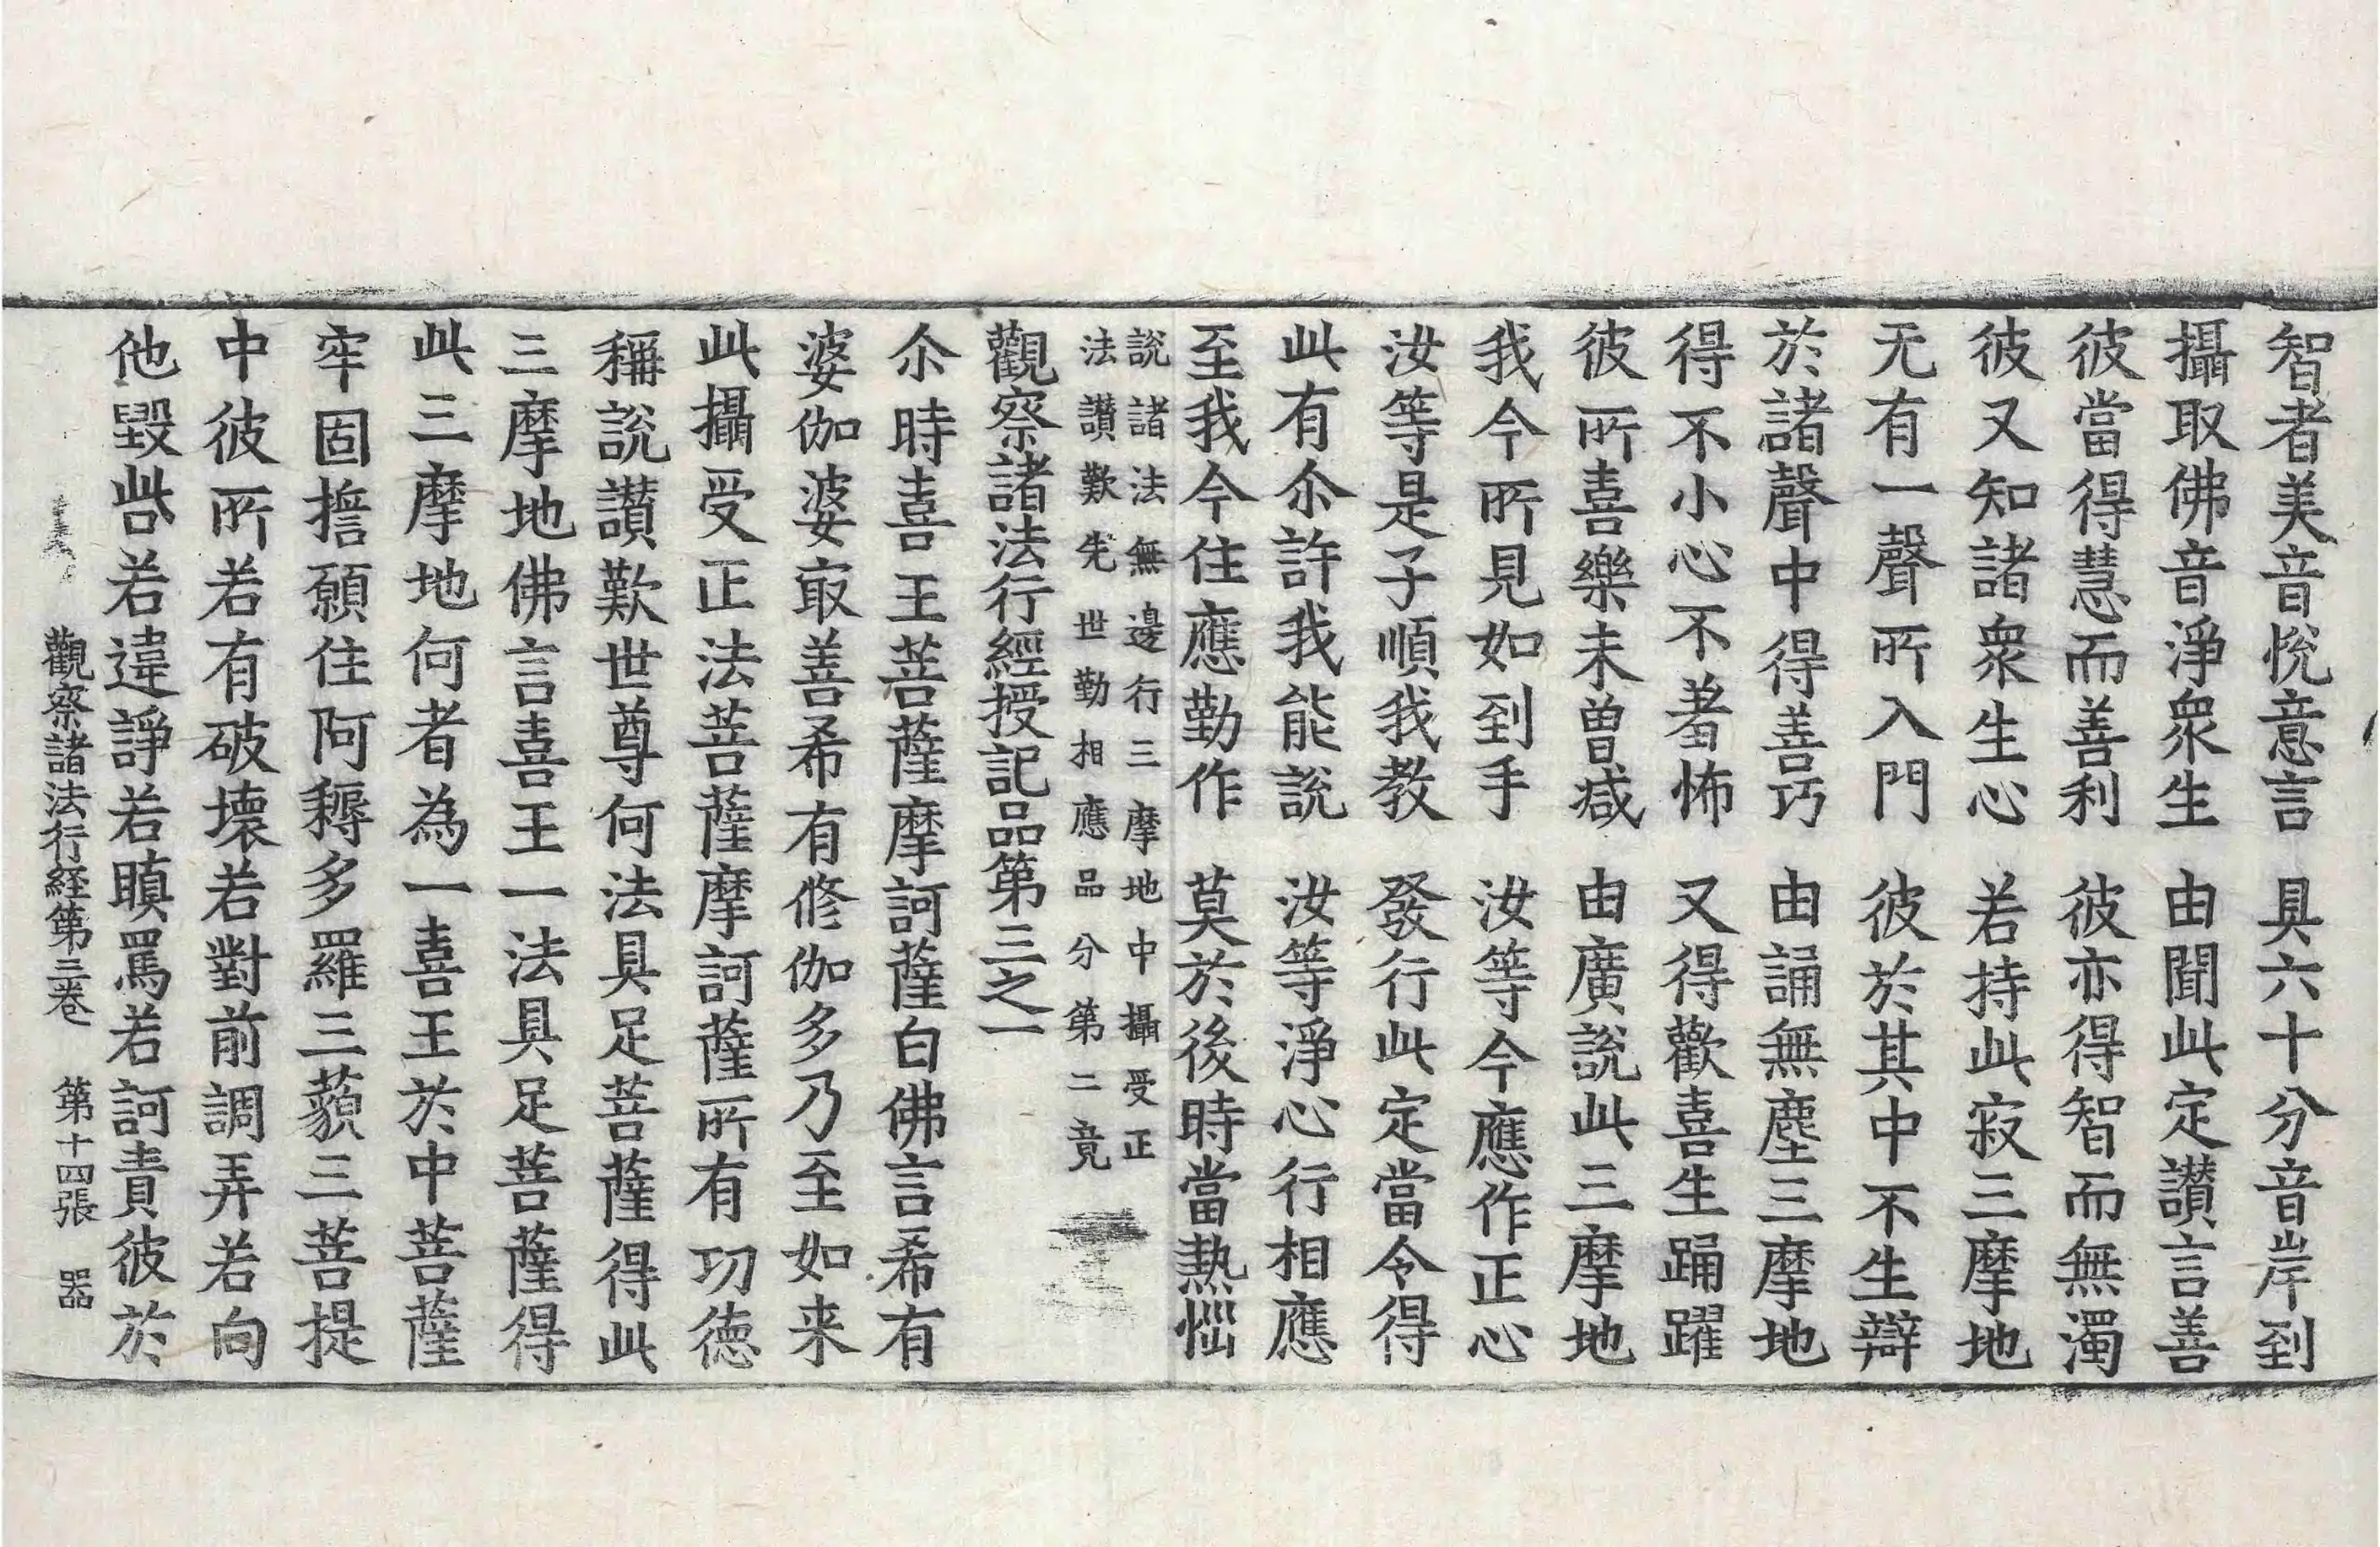 智者美音悅意言　具六十分音岸到
攝取佛音淨衆生　由聞此定讃言善
彼當得慧而善利　彼亦得智而無濁
彼又知諸衆生心　若持此寂三摩地
无有一聲所入門　彼於其中不生辯
於諸聲中得善巧　由誦無塵三摩地
得不小心不著怖　又得歡喜生踊躍
彼所喜樂未曽減　由廣說此三摩地
我今所見如到手　汝等今應作正心
汝等是子順我教　發行此定當令得
此有尒許我能說　汝等淨心行相應
至我今住應勤作　莫於後時當熱惱
說諸法無邊行三摩地中攝受正
法讃歎先世勤相應品分第二竟
觀察諸法行經授記品第三之一
尒時喜王菩薩摩訶薩白佛言希有
婆伽婆㝡善希有修伽多乃至如来
此攝受正法菩薩摩訶薩所有功徳
稱說讃歎世尊何法具足菩薩得此
三摩地佛言喜王一法具足菩薩得
此三摩地何者為一喜王於中菩薩
牢固擔願住阿耨多羅三藐三菩提
中彼所若有破壞若對前調弄若向
他毀呰若違諍若瞋罵若訶責彼於
觀察諸法行経第三卷　第十四張　器